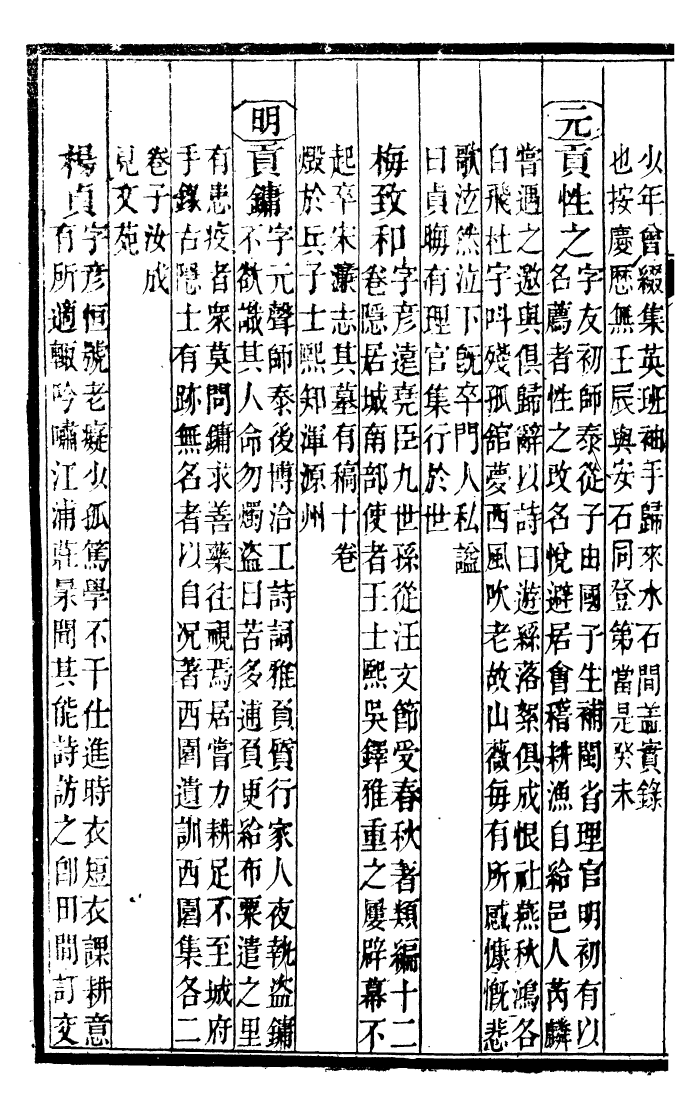 少年曾綴集英班袖手歸來水石間盖實錄
也按慶厯無壬辰與安石同登第當是癸未
元
貢性之
字友初師泰從子由國子生補閩省理官明初有以
名薦者性之改名悅避居會稽耕漁自給邑人芮麟
嘗遇之邀與俱歸辭以詩曰遊絲落絮俱成恨社燕秋鴻各
自飛杜宇呌殘孤舘夢西風吹老故山薇毎有所感慷慨悲
歌泣然泣下旣卒門人私諡
曰貞晦有理官集行於世
梅致和
字彦遠堯臣九世孫從汪文節受春秋著類編十二
卷隱居城南部使者王士熙吳鐸雅重之屢辟幕不
起卒宋濂志其墓有稿十卷
燬於兵子士熙知渾源州
明
貢鏞
字元聲師泰後博洽工詩詞雅負質行家人夜執盗鏞
不欲識其人命勿燭盗曰苦多逋負更給布粟遣之里
有患疫者衆莫問鏞求善藥往視焉居嘗力耕足不至城府
手錄古隱士有跡無名者以自况著西園遺訓西園集各二
卷子汝成
見文苑
楊貞
字彦恒號老癡少孤篤學不干仕進時衣短衣課耕意
有所適輒吟嘯江浦莊㫤聞其能詩訪之卽田間訂交